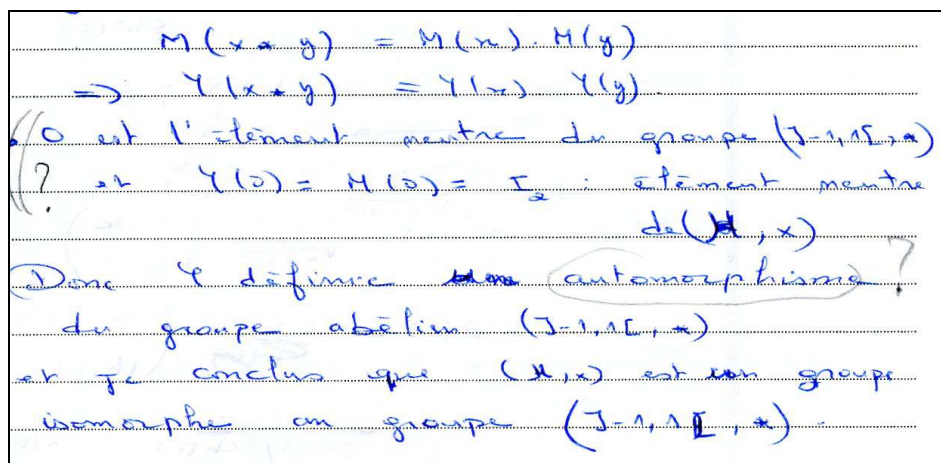 M(x * y) = M(x). M(y)
=> Y(x * y) = Y(x) Y(y)
0 est l'élément neutre du groupe (]-1,1[, *)
? et Y(0) = M(0) = I₂ : élément neutre
de (M, x)
Donc Y définie automorphisme ?
du groupe abélien (]-1,1[, *)
et je conclus que (M,x) est un groupe
isomorphe au groupe (]-1,1[, *).